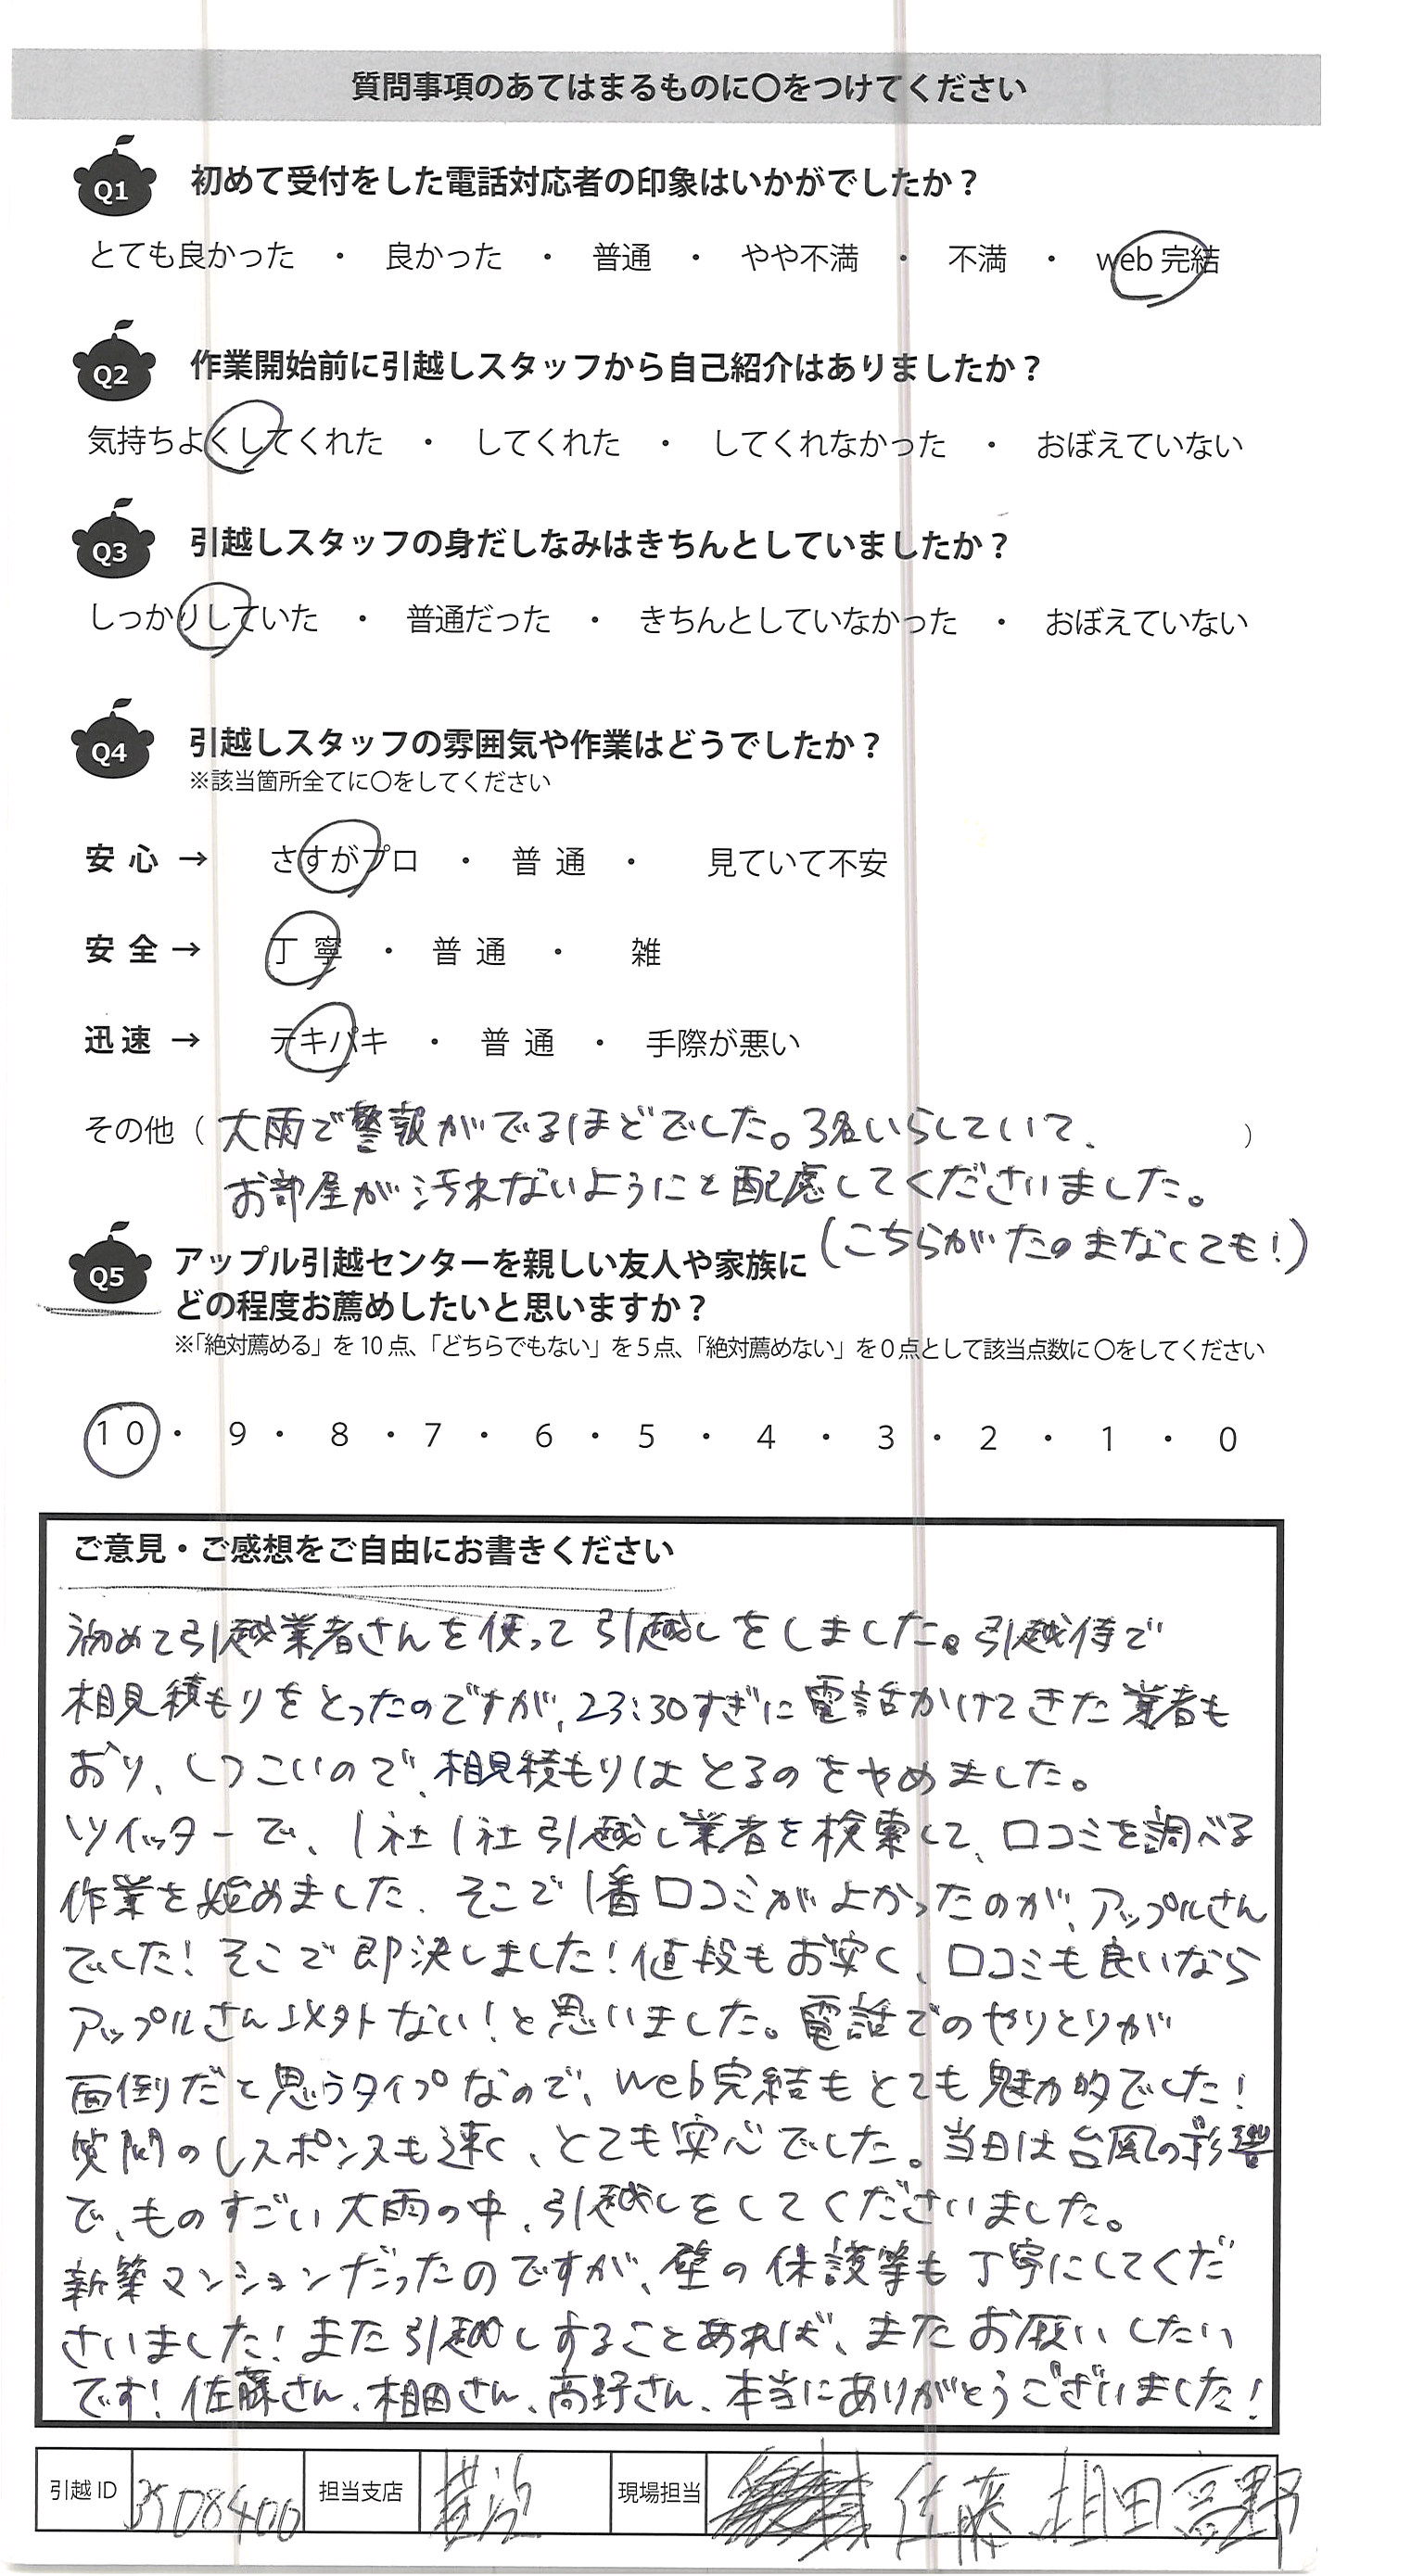 質問事項のあてはまるものに〇をつけてください
Q1 初めて受付をした電話対応者の印象はいかがでしたか？
とても良かった ・ 良かった ・ 普通 ・ やや不満 ・ 不満 ・ web 完結
Q2 作業開始前に引越しスタッフから自己紹介はありましたか？
気持ちよくしてくれた ・ してくれた ・ してくれなかった ・ おぼえていない
Q3 引越しスタッフの身だしなみはきちんとしていましたか？
しっかりしていた ・ 普通だった ・ きちんとしていなかった ・ おぼえていない
Q4 引越しスタッフの雰囲気や作業はどうでしたか？
※該当箇所全てに〇をしてください
安心 → さすがプロ ・ 普通 ・ 見ていて不安
安全 → 丁寧 ・ 普通 ・ 雑
迅速 → テキパキ ・ 普通 ・ 手際が悪い
その他（ 大雨で警報がでるほどでした。3名いらしていて、 ）
お部屋が汚れないようにと配慮してくださいました。
(こちらがたのまなくても！)
Q5 アップル引越センターを親しい友人や家族に
どの程度お薦めしたいと思いますか？
※「絶対薦める」を10点、「どちらでもない」を5点、「絶対薦めない」を0点として該当点数に〇をしてください
10 ・ 9 ・ 8 ・ 7 ・ 6 ・ 5 ・ 4 ・ 3 ・ 2 ・ 1 ・ 0
ご意見・ご感想をご自由にお書きください
初めて引越業者さんを使って引越しをしました。引越侍で
相見積もりをとったのですが、23:30すぎに電話かけてきた業者も
おり、しつこいので、相見積もりはとるのをやめました。
ツイッターで、1社1社引越し業者を検索して、口コミを調べる
作業を始めました。そこで1番口コミがよかったのが、アップルさん
でした！そこで即決しました！値段もお安く、口コミも良いなら
アップルさん以外ない！と思いました。電話でのやりとりが
面倒だと思うタイプなので、web完結もとても魅力的でした！
質問のレスポンスも速く、とても安心でした。当日は台風の影響
で、ものすごい大雨の中、引越しをしてくださいました。
新築マンションだったのですが、壁の保護等も丁寧にしてくだ
さいました！また引越しすることあれば、またお願いしたい
です！佐藤さん、相田さん、高野さん、本当にありがとうございました！
引越ID 3508400 担当支店 現場担当 佐藤 相田 高野